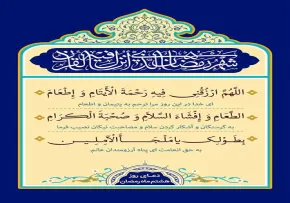 شهر رمضان الذي أنزل فيه القرآن
اللهم ارزقني فيه رحمة الأيتام و إطعام
ای خدا در این روز مرا ترحم به یتیمان و اطعام
الطعام و إفشاء السلام و صحبة الكرام
به گرسنگان و آشکار کردن سلام و مصاحبت نیکان نصیب فرما
بطولك يا ملجأ الآملين
به حق انعامت ای پناه آرزومندان عالم.
دعای روز
هشتم ماه رمضان